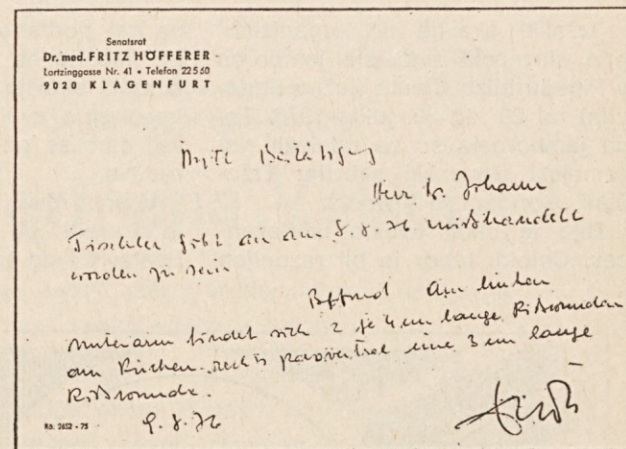 Senatsrat
Dr. med. FRITZ HÖFFERER
Lortzinggasse Nr. 41 • Telefon 22560
9020 KLAGENFURT
Ärztl. Bestätigung
Herr Dr. Johann
Tischler gibt an am 8.8.76 mißhandelt
worden zu sein
Befund Am linken
Unterarm findet sich 2 je 4 cm lange Rißwunden
am Rücken rechts paravertral eine 3 cm lange
Rißwunde.
9.8.76
Rö. 2652 - 75